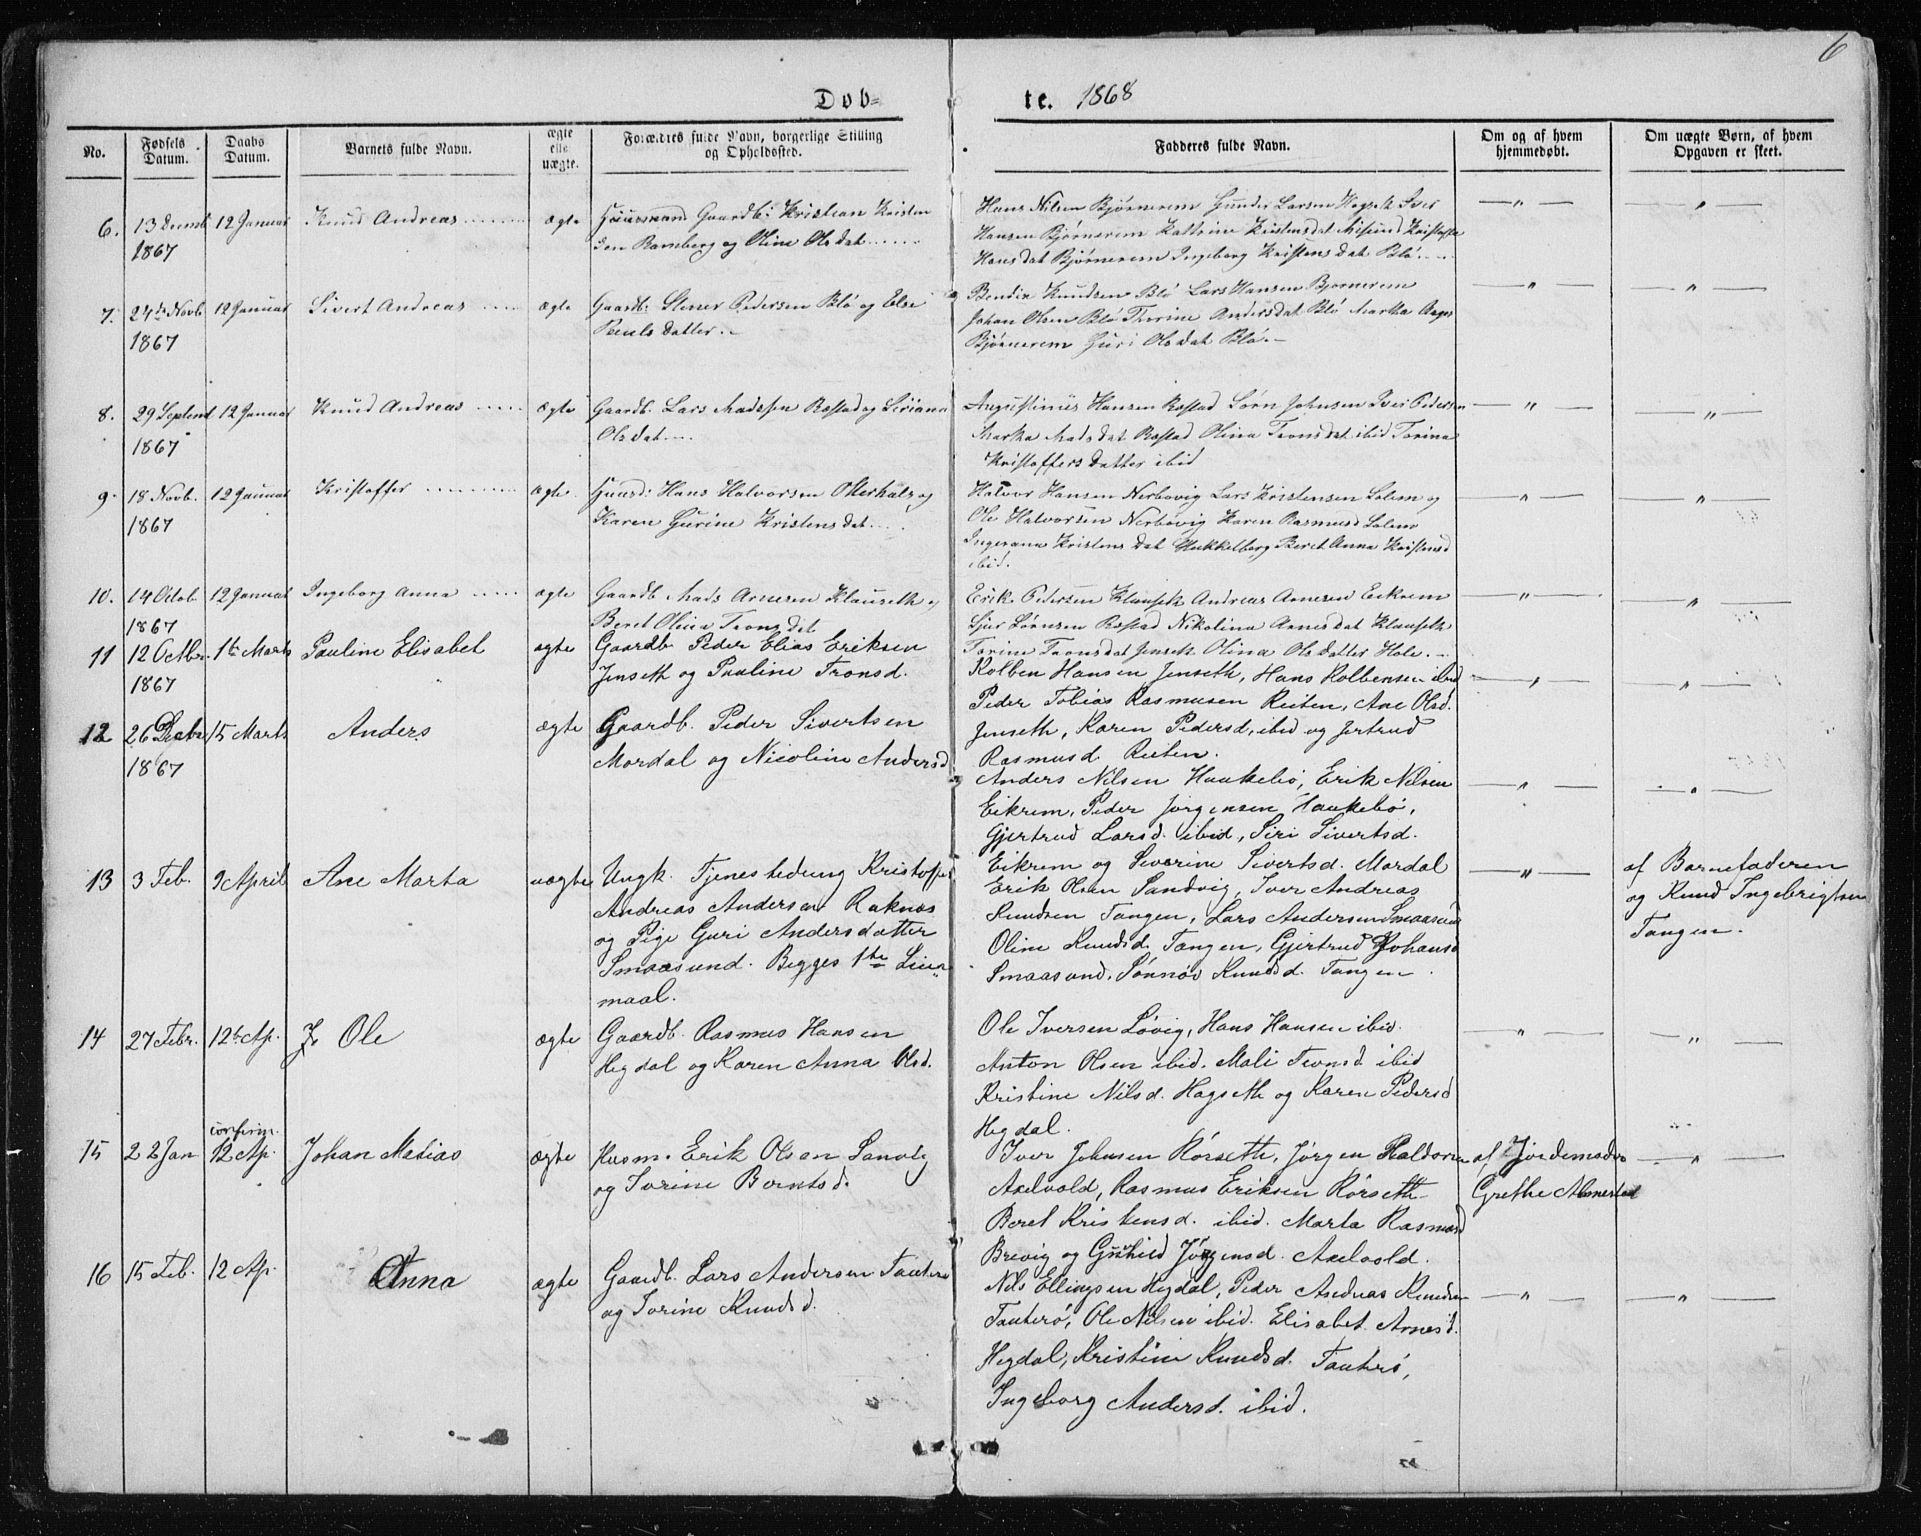 6
Døb- te. 1868
No. Fødsels Datum. Daabs Datum. Barnets fulde Navn. ægte elle uægte. Forældres fulde Navn, borgerlige Stilling og Opholdssted. Fadderes fulde Navn. Om og af hvem hjemmedøbt. Om uægte Børn, af hvem Opgaven er skeet.
6. 13 Decemb 12 Januar Knud Andreas ægte Huusmand Gaardb: Kristian Kristen
1867 sen Ramberg og Oline Olsdat
Hans Nilsen Bjørnerem Gunder Larsen Iver
Hansen Bjørnerem Kathrine Kristensdat Kristoffer
Hansdat Bjørnerem Ingeborg Kristensdat Blø.
— " — — " —
7. 24de Novb. 12 Januar Sivert Andreas ægte Gaardb: Stener Pedersen Blø og Else
1867 Poulsdatter.
Bendix Knudsen Blø Lars Hansen Bjørnerem
Johan Olsen Blø Thorine Andersdat Blø Marta
Bjørnerem Guri Olsdat Blø.
— " — — " —
8. 29 Septemb 12 Januar Knud Andreas ægte Gaardb. Lars Madssen Rostad og Siriana
1867 Olsdat
Augustinus Hansen Rostad Sørn Johnsen Iver Pedersen
Marta Madsdat Rostad Olina Tronsdat ibid Torina
Kristoffersdatter ibid
— " — — " —
9. 18 Novb. 12 Januar Kristoffer ægte. Huusd: Hans Halvorsen Otterhals og
1867 Karen Gurine Kristensdat.
Halvor Hansen Nerbøvig Lars Kristensen Solem og
Ole Halvorsen Nerbøvig Karen Rasmusd Solem
Ingerana Kristensdat Mukkelberg Beret Anna Kristensd
ibid.
— " — — " —
10. 14 Octob. 12 Januar Ingeborg Anna ægte Gaardb Mads Arnesen Klauseth og
1867 Beret Olina Tronsdat
Erik Pedersen Klauseth Andreas Arnesen Eikrem
Sjur Sørnsen Rostad Nikolina Arnesdat Klauseth
Torine Tronsdat Jenseth Olina Olsdatter Hole.
— " — — " —
11 12 Octbr. 1te Marts Pauline Elisabet ægte Gaardb Peder Elias Eriksen
1867 Jenseth og Pauline Tronsd.
Kolben Hansen Jenseth, Hans Kolbensen ibid
Peder Tobias Rasmusen Reiten, Ane Olsd.
Jenseth, Karen Pedersd, ibid og Jertrud
Rasmusd Reiten.
— " — — " —
12 26 Decbr 15 Marts Anders ægte Gaardb. Peder Sivertsen
1867 Mordal og Nicoline Andersd
Anders Nilsen Haukebø, Erik Nilsen
Eikrem, Peder Jørgensen Haukebø,
Gjertrud Larsd. ibid, Siri Sivertsd.
Eikrem og Severine Sivertsd. Mordal
— " — — " —
13 3 Feb. 9 April Ane Marta uægte Ungk. Tjenestedreng Kristoffer
Andreas Andersen Raknæs
og Pige Guri Andersdatter
Smaasund. Begges 1te Leier
maal.
Erik Olsen Sandvig, Iver Andreas
Knudsen Tangen, Lars Andersen Smaasund
Oline Knudsd. Tangen, Gjertrud Johansd
Smaasund, Sønnøv Knudsd. Tangen.
— " — af Barnefaderen
og Knud Ingebrigtsen
Tangen.
14 27 Febr. 12te Ap. Ole ægte Gaardb. Rasmus Hansen
Hegdal og Karen Anna Olsd.
Ole Iversen Løvig, Hans Hansen ibid.
Anton Olsen ibid. Mali Tronsd ibid
Kristine Nilsd. Hagseth og Karen Pedersd
Hegdal.
— " — — " —
15 22 Jan confirm. 12 Ap. Johan Matias ægte Husm. Erik Olsen Sandvig
og Torine Berntsd.
Iver Johnsen Rørseth, Jørgen Haldorsen
Axelvold, Rasmus Eriksen Rørseth
Beret Kristensd. ibid. Marta Rasmusd
Brevig og Gunhild Jørgensd. Axelvold.
af Jordemoder
Grethe
— " —
16 15 Feb. 12 Ap. Anna ægte Gaardb. Lars Andersen Tauterø
og Torine Knudsd.
Nils Ellingsen Hegdal, Peder Andreas Knudsen
Tauterø, Ole Nilsen ibid. Elisabet Arnesd.
Hegdal, Kristine Knudsd. Tauterø,
Ingeborg Andersd. ibid.
— " — — " —